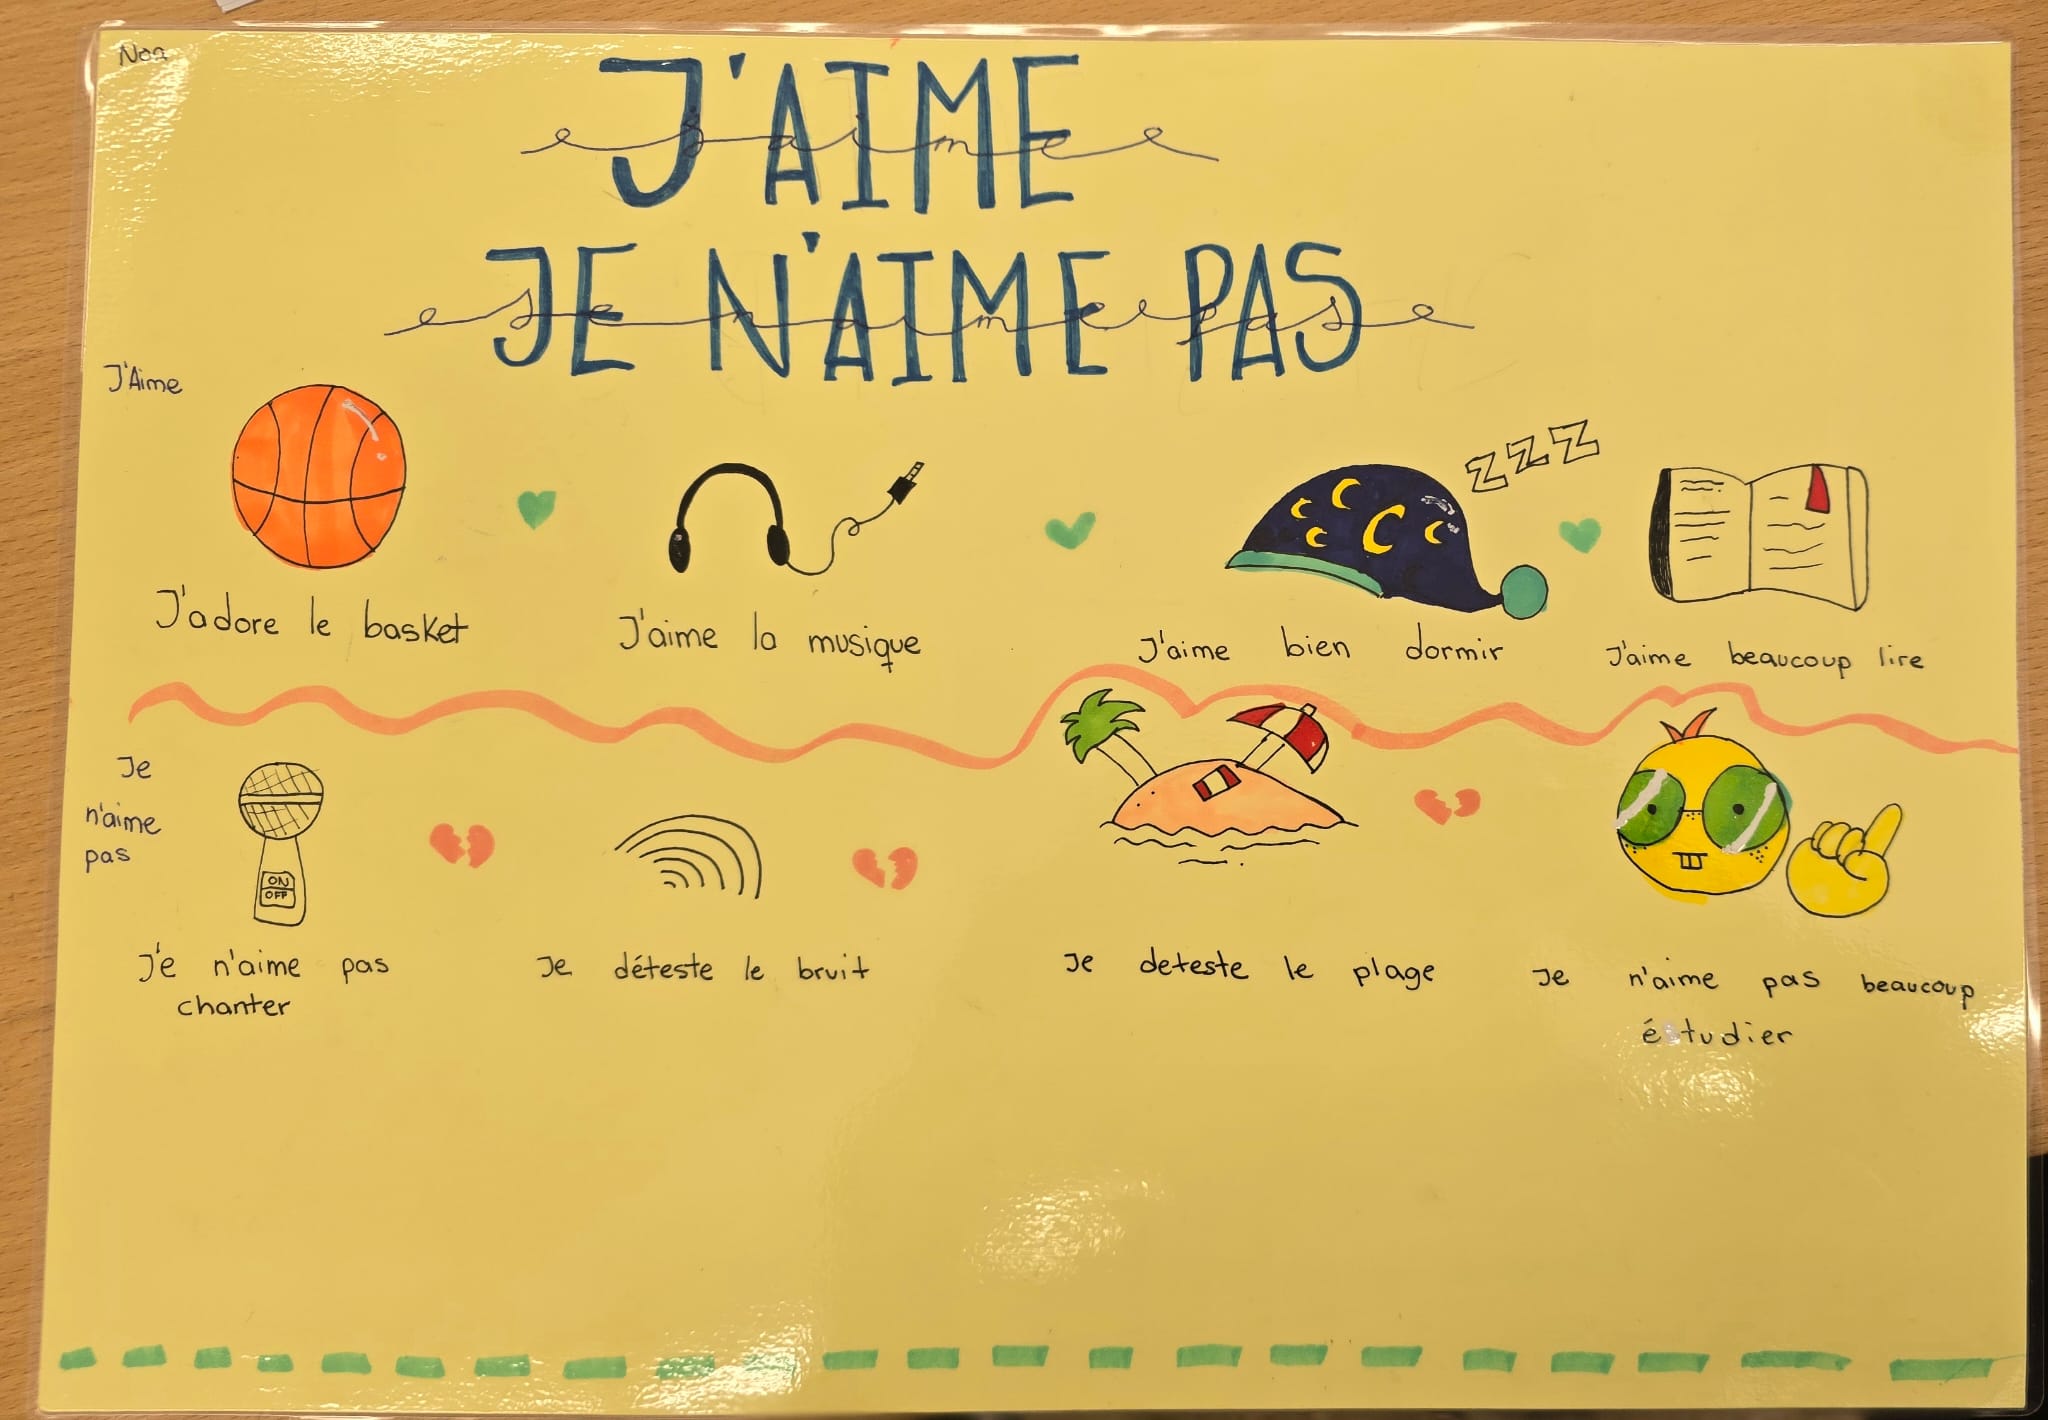 Noa
J'AIME
j'aime
JE N'AIME PAS
je n'aime pas
J'Aime
ZZZ
J'adore le basket
J'aime la musique
J'aime bien dormir
J'aime beaucoup lire
Je
n'aime
pas
ON
OFF
J'e n'aime pas
chanter
Je déteste le bruit
Je deteste le plage
Je n'aime pas beaucoup
étudier